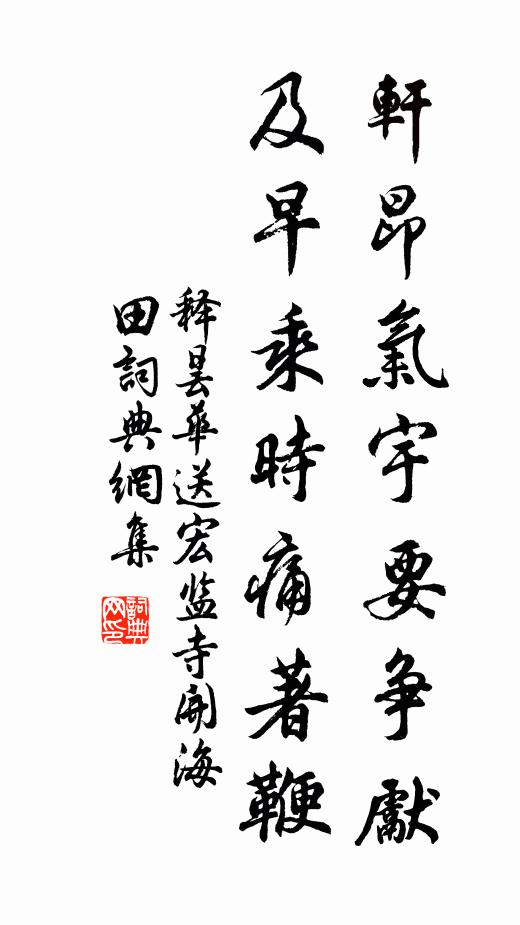 軒昂氣宇要争獻
及早乘時痛著鞭
释曇華送宏监寺開海
田詞典網集
詞典网印